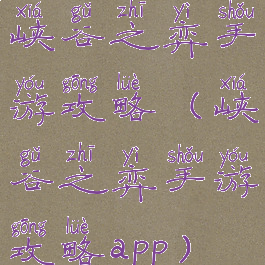 xiá gǔ zhī yì shǒu
峡谷之弈手
yóu gōng lüè xiá
游攻略（峡
gǔ zhī yì shǒu yóu
谷之弈手游
gōng lüè
攻略app）